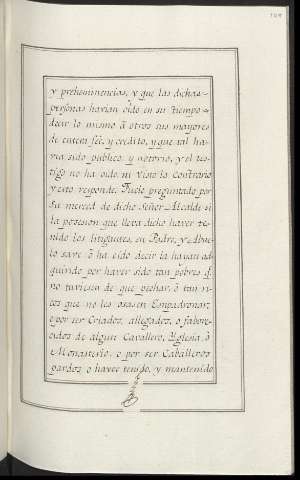 y preheminencias, y que las dichas
personas havian oido en su tiempo
decir lo mismo â otros sus mayores
de entera feé, y credito, y que tal ha-
via sido publico, y notorio, y el tes-
tigo no ha oido, ni visto lo contrario
y esto responde. Fuele preguntado por
su merced de dicho Señor Alcalde si
la posesion que lleva dicho haver te-
nido los litigantes, su Padre, y Abue-
lo save ô ha oido decir la hayan ad-
quirido por haver sido tan pobres q.
no tuviesen de que pechar, ô tan ri-
cos que no les osasen Empadronar,
o por ser Criados, allegados, o favore-
cidos de algun Cavallero, Yglesia, ô
Monasterio, o por ser Caballeros
pardos o haver tenido, y mantenido